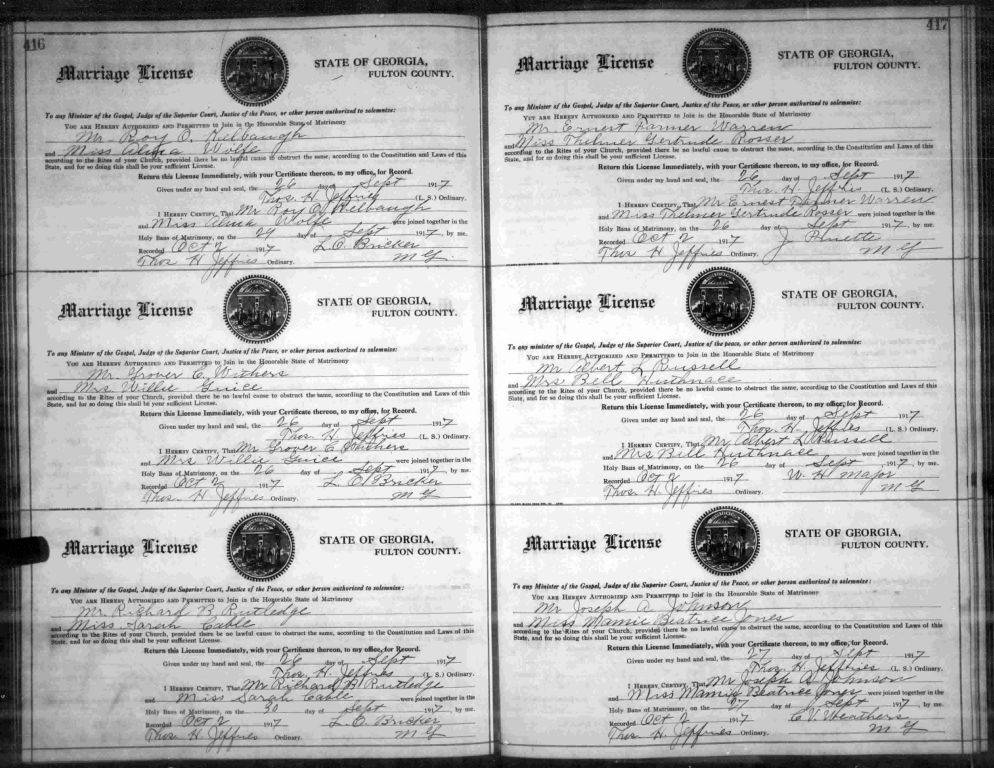 416
Marriage License
STATE OF GEORGIA,
FULTON COUNTY.
To any Minister of the Gospel, Judge of the Superior Court, Justice of the Peace, or other person authorized to solemnize:
YOU ARE HEREBY AUTHORIZED AND PERMITTED to Join in the Honorable State of Matrimony
Mr. Roy O. Helbaugh
and Miss Alma Wolfe
according to the Rites of your Church, provided there be no lawful cause to obstruct the same, according to the Constitution and Laws of this
State, and for so doing this shall be your sufficient License.
Return this License Immediately, with your Certificate thereon, to my office, for Record.
Given under my hand and seal, the 26 day of Sept 1917
Thos. H. Jeffries (L. S.) Ordinary.
I HEREBY CERTIFY, That Mr Roy O. Helbaugh
and Miss Alma Wolfe were joined together in the
Holy Bans of Matrimony, on the 29 day of Sept 1917, by me.
Recorded Oct 2 1917 L. O. Bricker
Thos H Jeffries Ordinary. M G.
Marriage License
STATE OF GEORGIA,
FULTON COUNTY.
To any Minister of the Gospel, Judge of the Superior Court, Justice of the Peace, or other person authorized to solemnize:
YOU ARE HEREBY AUTHORIZED AND PERMITTED to Join in the Honorable State of Matrimony
Mr. Grover C. Withers
and Mrs Willie Guice
according to the Rites of your Church, provided there be no lawful cause to obstruct the same, according to the Constitution and Laws of this
State, and for so doing this shall be your sufficient License.
Return this License Immediately, with your Certificate thereon, to my office, for Record.
Given under my hand and seal, the 26 day of Sept 1917
Thos. H. Jeffries (L. S.) Ordinary.
I HEREBY CERTIFY, That Mr Grover C Withers
and Mrs Willie Guice were joined together in the
Holy Bans of Matrimony, on the 26 day of Sept 1917, by me.
Recorded Oct 2 1917 L. O. Bricker
Thos. H Jeffries Ordinary. M G
Marriage License
STATE OF GEORGIA,
FULTON COUNTY.
To any Minister of the Gospel, Judge of the Superior Court, Justice of the Peace, or other person authorized to solemnize:
YOU ARE HEREBY AUTHORIZED AND PERMITTED to Join in the Honorable State of Matrimony
Mr. Richard B. Rutledge
and Miss Sarah Cable
according to the Rites of your Church, provided there be no lawful cause to obstruct the same, according to the Constitution and Laws of this
State, and for so doing this shall be your sufficient License.
Return this License Immediately, with your Certificate thereon, to my office, for Record.
Given under my hand and seal, the 26 day of Sept 1917
Thos. H. Jeffries (L. S.) Ordinary.
I HEREBY CERTIFY, That Mr Richard B Rutledge
and Miss Sarah Cable were joined together in the
Holy Bans of Matrimony, on the 30 day of Sept 1917, by me.
Recorded Oct 2 1917 L. O. Bricker
Thos. H Jeffries Ordinary. M G
417
Marriage License
STATE OF GEORGIA,
FULTON COUNTY.
To any Minister of the Gospel, Judge of the Superior Court, Justice of the Peace, or other person authorized to solemnize:
YOU ARE HEREBY AUTHORIZED AND PERMITTED to Join in the Honorable State of Matrimony
Mr. Ernest Farmer Warren
and Miss Thelmer Gertrude Rosser
according to the Rites of your Church, provided there be no lawful cause to obstruct the same, according to the Constitution and Laws of this
State, and for so doing this shall be your sufficient License.
Return this License Immediately, with your Certificate thereon, to my office, for Record.
Given under my hand and seal, the 26 day of Sept 1917
Thos. H. Jeffries (L. S.) Ordinary.
I HEREBY CERTIFY, That Mr Ernest Farmer Warren
and Miss Thelmer Gertrude Rosser were joined together in the
Holy Bans of Matrimony, on the 26 day of Sept 1917, by me.
Recorded Oct 2 1917 J
Thos H Jeffries Ordinary. M G
Marriage License
STATE OF GEORGIA,
FULTON COUNTY.
To any minister of the Gospel, Judge of the Superior Court, Justice of the Peace, or other person authorized to solemnize:
YOU ARE HEREBY AUTHORIZED AND PERMITTED to Join in the Honorable State of Matrimony
Mr Albert L Russell
and Mrs Bell Huthnace
according to the Rites of your Church, provided there be no lawful cause to obstruct the same, according to the Constitution and Laws of this
State, and for so doing this shall be your sufficient License.
Return this License Immediately, with your Certificate thereon, to my office, for Record.
Given under my hand and seal, the 26 day of Sept 1917
Thos. H. Jeffries (L. S.) Ordinary.
I HEREBY CERTIFY, That Mr Albert L Russell
and Mrs Bell Huthnace were joined together in the
Holy Bans of Matrimony, on the 26 day of Sept 1917, by me.
Recorded Oct 2 1917 W. H. Major
Thos. H. Jeffries Ordinary. M G
Marriage License
STATE OF GEORGIA,
FULTON COUNTY.
To any Minister of the Gospel, Judge of the Superior Court, Justice of the Peace, or other person authorized to solemnize:
YOU ARE HEREBY AUTHORIZED AND PERMITTED to Join in the Honorable State of Matrimony
Mr Joseph A Johnson
and Miss Mamie Beatrice Jones
according to the Rites of your Church, provided there be no lawful cause to obstruct the same, according to the Constitution and Laws of this
State, and for so doing this shall be your sufficient License.
Return this License Immediately, with your Certificate thereon, to my office, for Record.
Given under my hand and seal, the 27 day of Sept 1917
Thos. H. Jeffries (L. S.) Ordinary.
I HEREBY CERTIFY, That Mr Joseph A Johnson
and Miss Mamie Beatrice Jones were joined together in the
Holy Bans of Matrimony, on the 27 day of Sept 1917, by me.
Recorded Oct 2 1917 C. V. Weathers
Thos. H. Jeffries Ordinary. M G